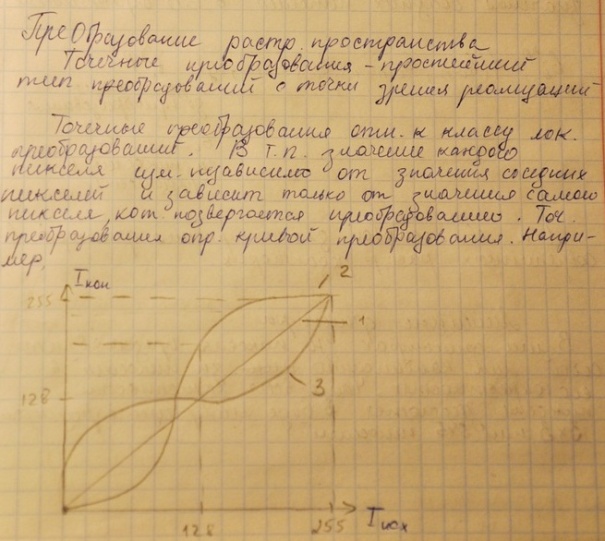 Преобразование растр. пространства
Точечные приобразования - простейший
тип преобразований с точки зрения реализаций
Точечные преобразования отн. к классу лок.
преобразований. В т.п. значение каждого
пикселя изм. независимо от значения соседних
пикселей и зависит только от значения самого
пикселя, кот подвергается приобразованию. Точ.
преобразования опр. кривой преобразования. Напри-
мер,
Iкон
255
2
1
128
3
128
255
Iисх